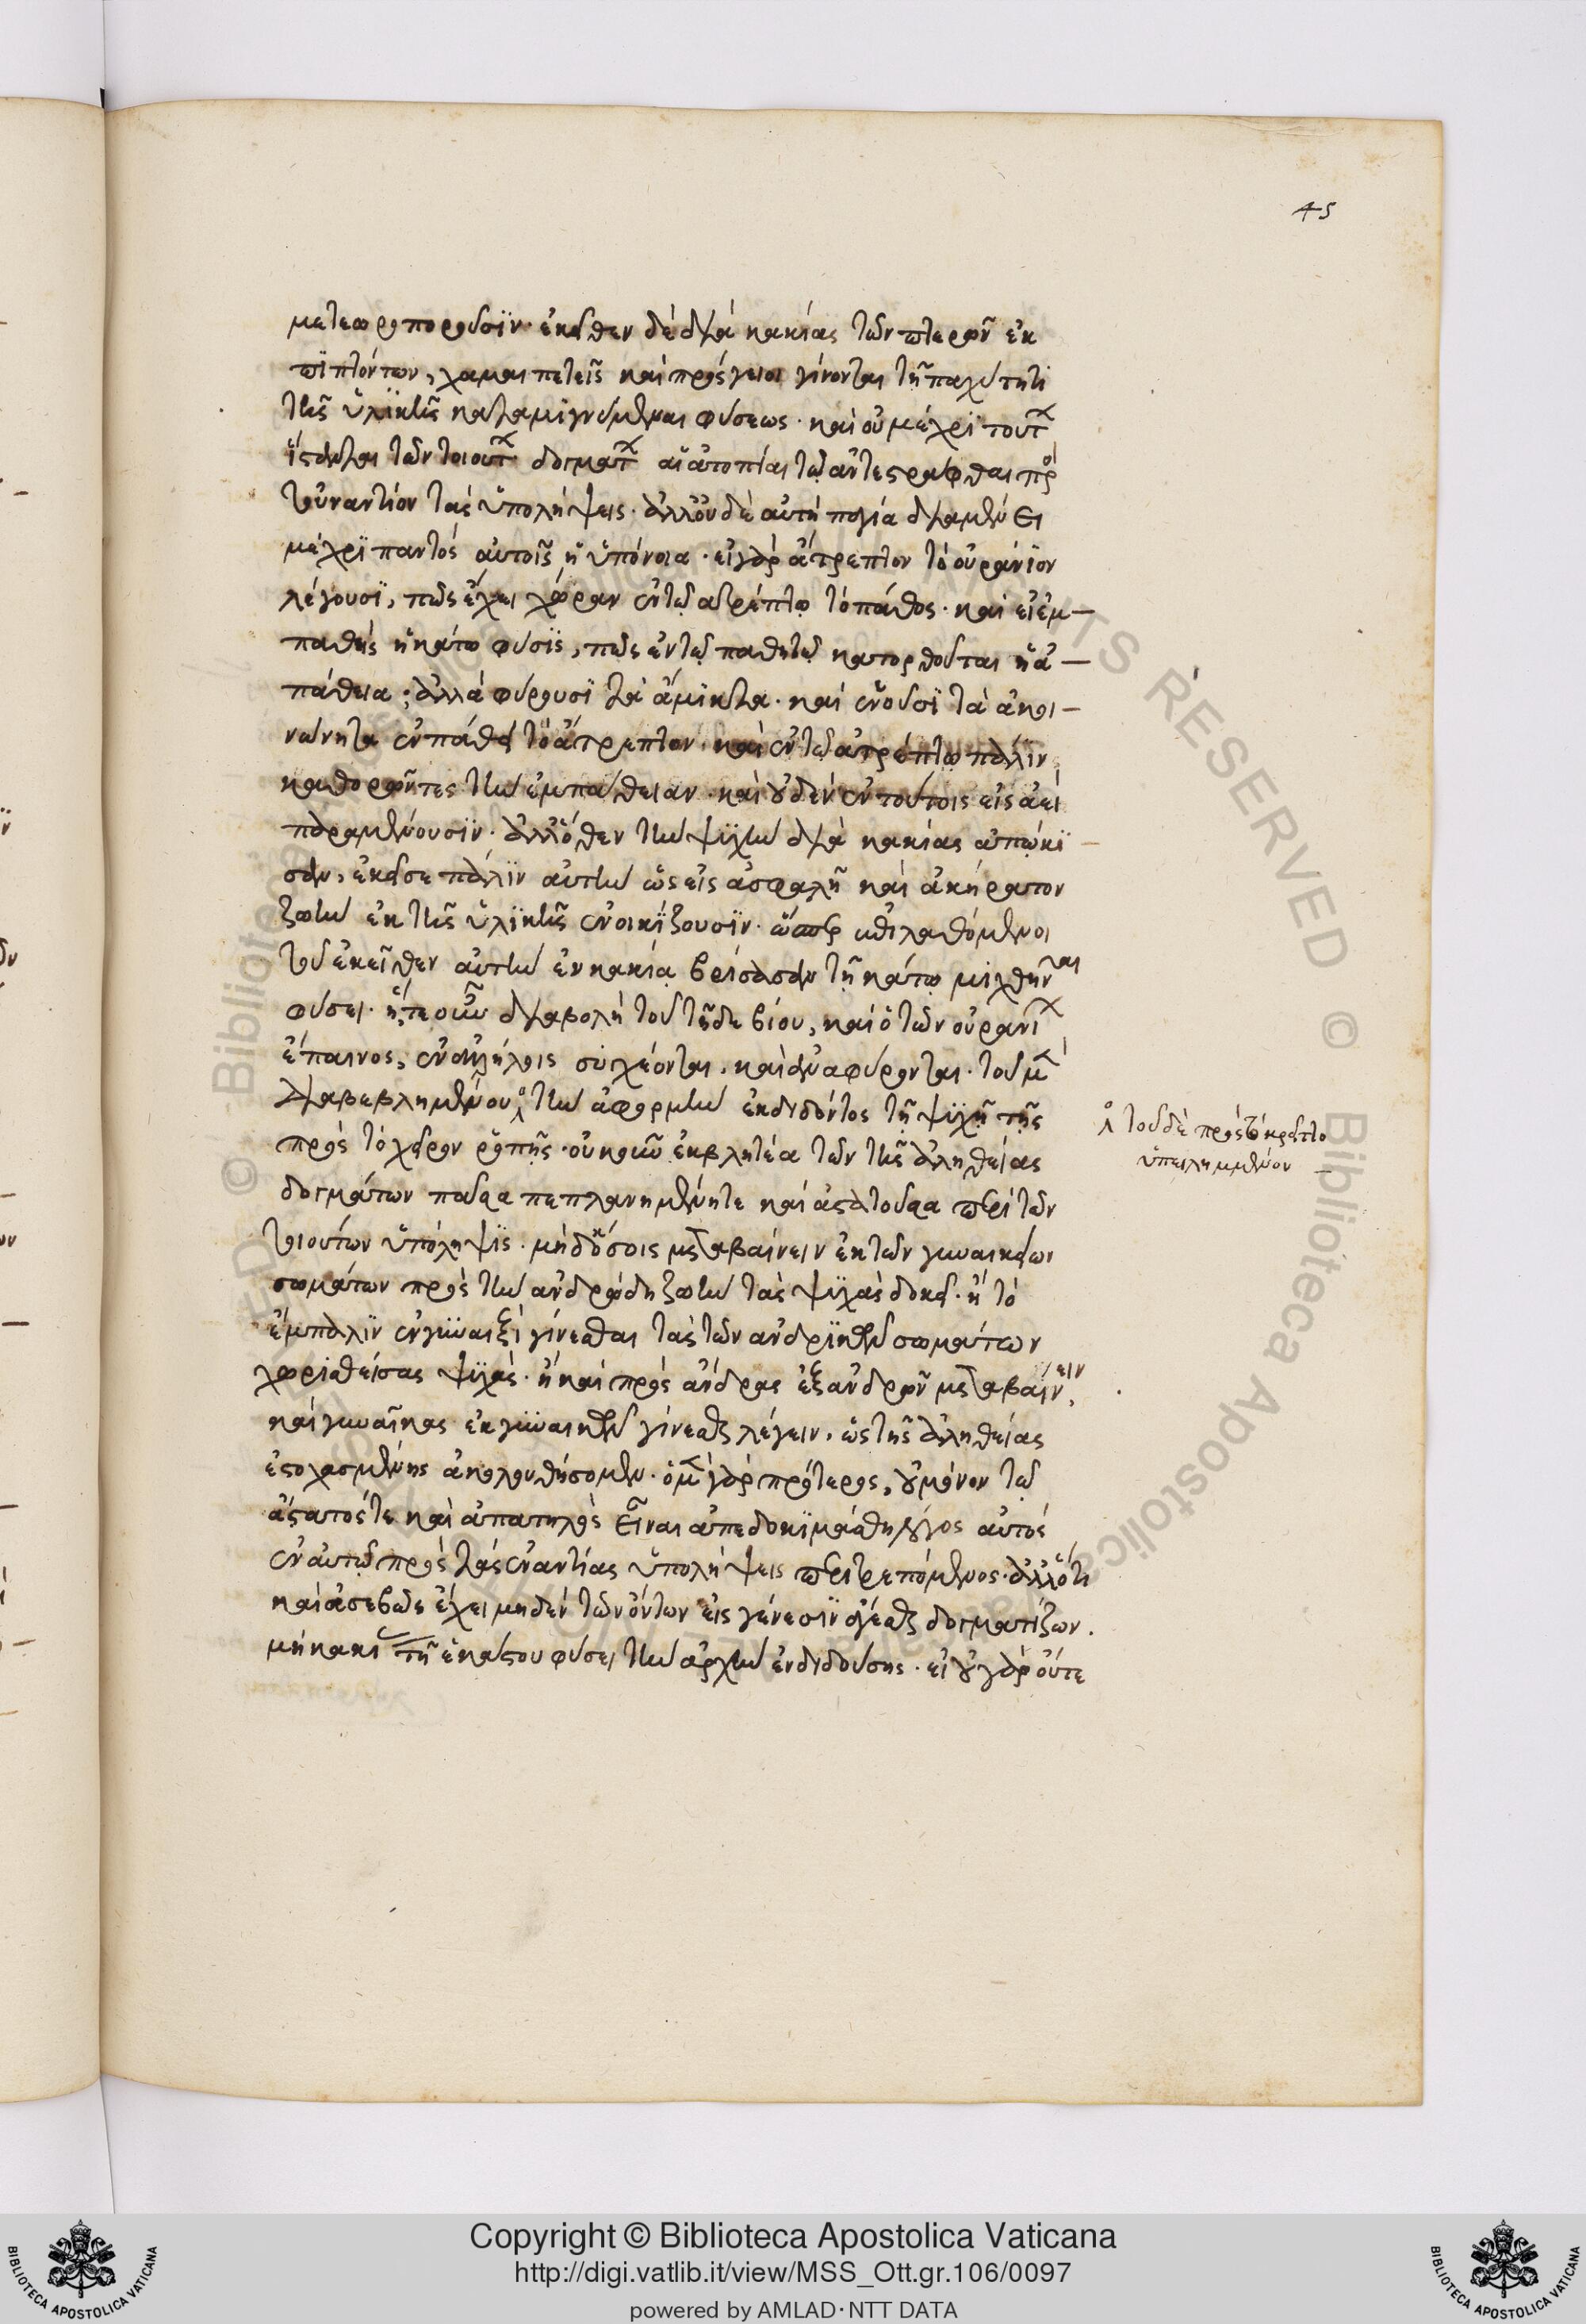 45
μετεωροπορουσϊν· ἐκεῖθεν δὲ διὰ κακίας τῶν πτερῶν ἐκ
πϊπτόντων, χαμαιπετεῖς καὶ πρόσγειοι γίνονται τῆ παχύτητι
τῆς ὑλϊκῆς καταμιγνύμεναι φύσεως· καὶ οὐ μέχρϊ τούτ
ἵσταται τῶν τοιούτ δογμάτ αἱ ἀτοπίαι τῷ ἀντεστράφθαι πρ
τοὐναντίον τὰς ὑπολήψεις· ἀλλ' οὐδὲ αὐτὴ παγία διαμένει
μέχρϊ παντὸς αὐτοῖς ἡ ὑπόνοια· εἰ γὰρ ἄτρεπτον τὸ οὐράνϊον
λέγουσϊ, πῶς ἔχει χώραν ἐν τῷ ἀτρέπτω τὸ πάθος· καὶ εἰ ἐμ–
παθὴς ἡ κάτω φύσϊς, πῶς ἐν τῷ παθητῷ κατορθοῦται ἡ ἀ–
πάθεια; ἀλλὰ φύρουσϊ τὰ ἄμϊκτα· καὶ ἑνοῦσϊ τὰ ἀκοι–
νώνητα ἐν πάθει τὸ ἄτρεπτον· καὶ ἐν τῷ ἀτρέπτω πάλϊν
καθορῶντες τὴν ἐμπάθειαν· καὶ οὐδὲν ἐν τούτοις εἰς ἀεὶ
παραμένουσϊν· ἀλλ' ὅθεν τὴν ψϋχὴν διὰ κακίας ἀπῴκϊ–
σαν, ἐκεῖσε πάλϊν αὐτὴν ὡς εἰς ἀσφαλῆ καὶ ἀκήρατον
ζωὴν ἐκ τῆς ὑλϊκῆς ἐνοικϊζουσϊν· ὥσπερ ἐπιλαθόμενοι
τοῦ ἐκεῖθεν αὐτὴν ἐν κακίᾳ βρίσασαν τῆ κάτω μιχθῆναι
φύσει· ἥ τε οὖν διαβολὴ τοῦ τῆδε βίου, καὶ ὁ τῶν οὐρανί
ἔπαινος, ἐν ἀλλήλοις συγχέονται, καὶ ἀναφύρονται· τοῦ μ
διαβεβλημένου τὴν ἀφορμὴν ἐκδιδόντος τῆ ψϋχῆ τῆς
πρὸς τὸ χεῖρον ῥοπῆς· οὐκοῦν ἐκβλητέα τῶν τῆς ἀληθείας
δογμάτων πᾶσα πεπλανημένη τε καὶ ἀστατοῦσα περὶ τῶν
τοιούτων ὑπόληψϊς· μὴδ' ὅσοις μεταβαίνειν ἐκ τῶν γυναικείων
σωμάτων πρὸς τὴν ἀνδρώδη ζωὴν τὰς ψϋχὰς δοκεῖ· ἢ τὸ
ἔμπαλϊν ἐν γυναιξὶ γίνεσθαι τὰς τῶν ἀνδρϊκῶν σωμάτων
χωρϊσθείσας ψϋχάς· ἢ καὶ πρὸς ἄνδρας ἐξ ἀνδρῶν μεταβαίνειν,
καὶ γυναῖκας ἐκ γυναικῶν γίνεσθαι λέγειν, ὡς τῆς ἀληθείας
ἐστοχασμένης ἀκολουθήσομεν· ὁ μ γὰρ πρότερος, οὐ μόνον τῷ
ἄστατός τε καὶ ἀπατηλὸς εἶναι ἀπεδοκϊμάσθη λόγος αὐτὸς
ἐν αὐτῷ πρὸς τὰς ἐναντίας ὑπολήψεις περιτρεπόμενος· ἀλλ' ὅτι
καὶ ἀσεβῶς ἔχει μηδὲν τῶν ὄντων εἰς γένεσϊν ἄγεσθαι δογματίζων·
μὴ κακί τῆ ἑκάστου φύσει τὴν ἀρχὴν ἐνδιδούσης· εἰ οὐ γὰρ οὔτε
τοῦ δὲ πρὸς τὸ κρεῖττο
ὑπειλημμένον –
Copyright © Biblioteca Apostolica Vaticana
http://digi.vatlib.it/view/MSS_Ott.gr.106/0097
powered by AMLAD·NTT DATA
BIBLIOTECA APOSTOLICA VATICANA
BIBLIOTECA APOSTOLICA VATICANA